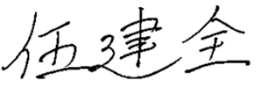 伍建全